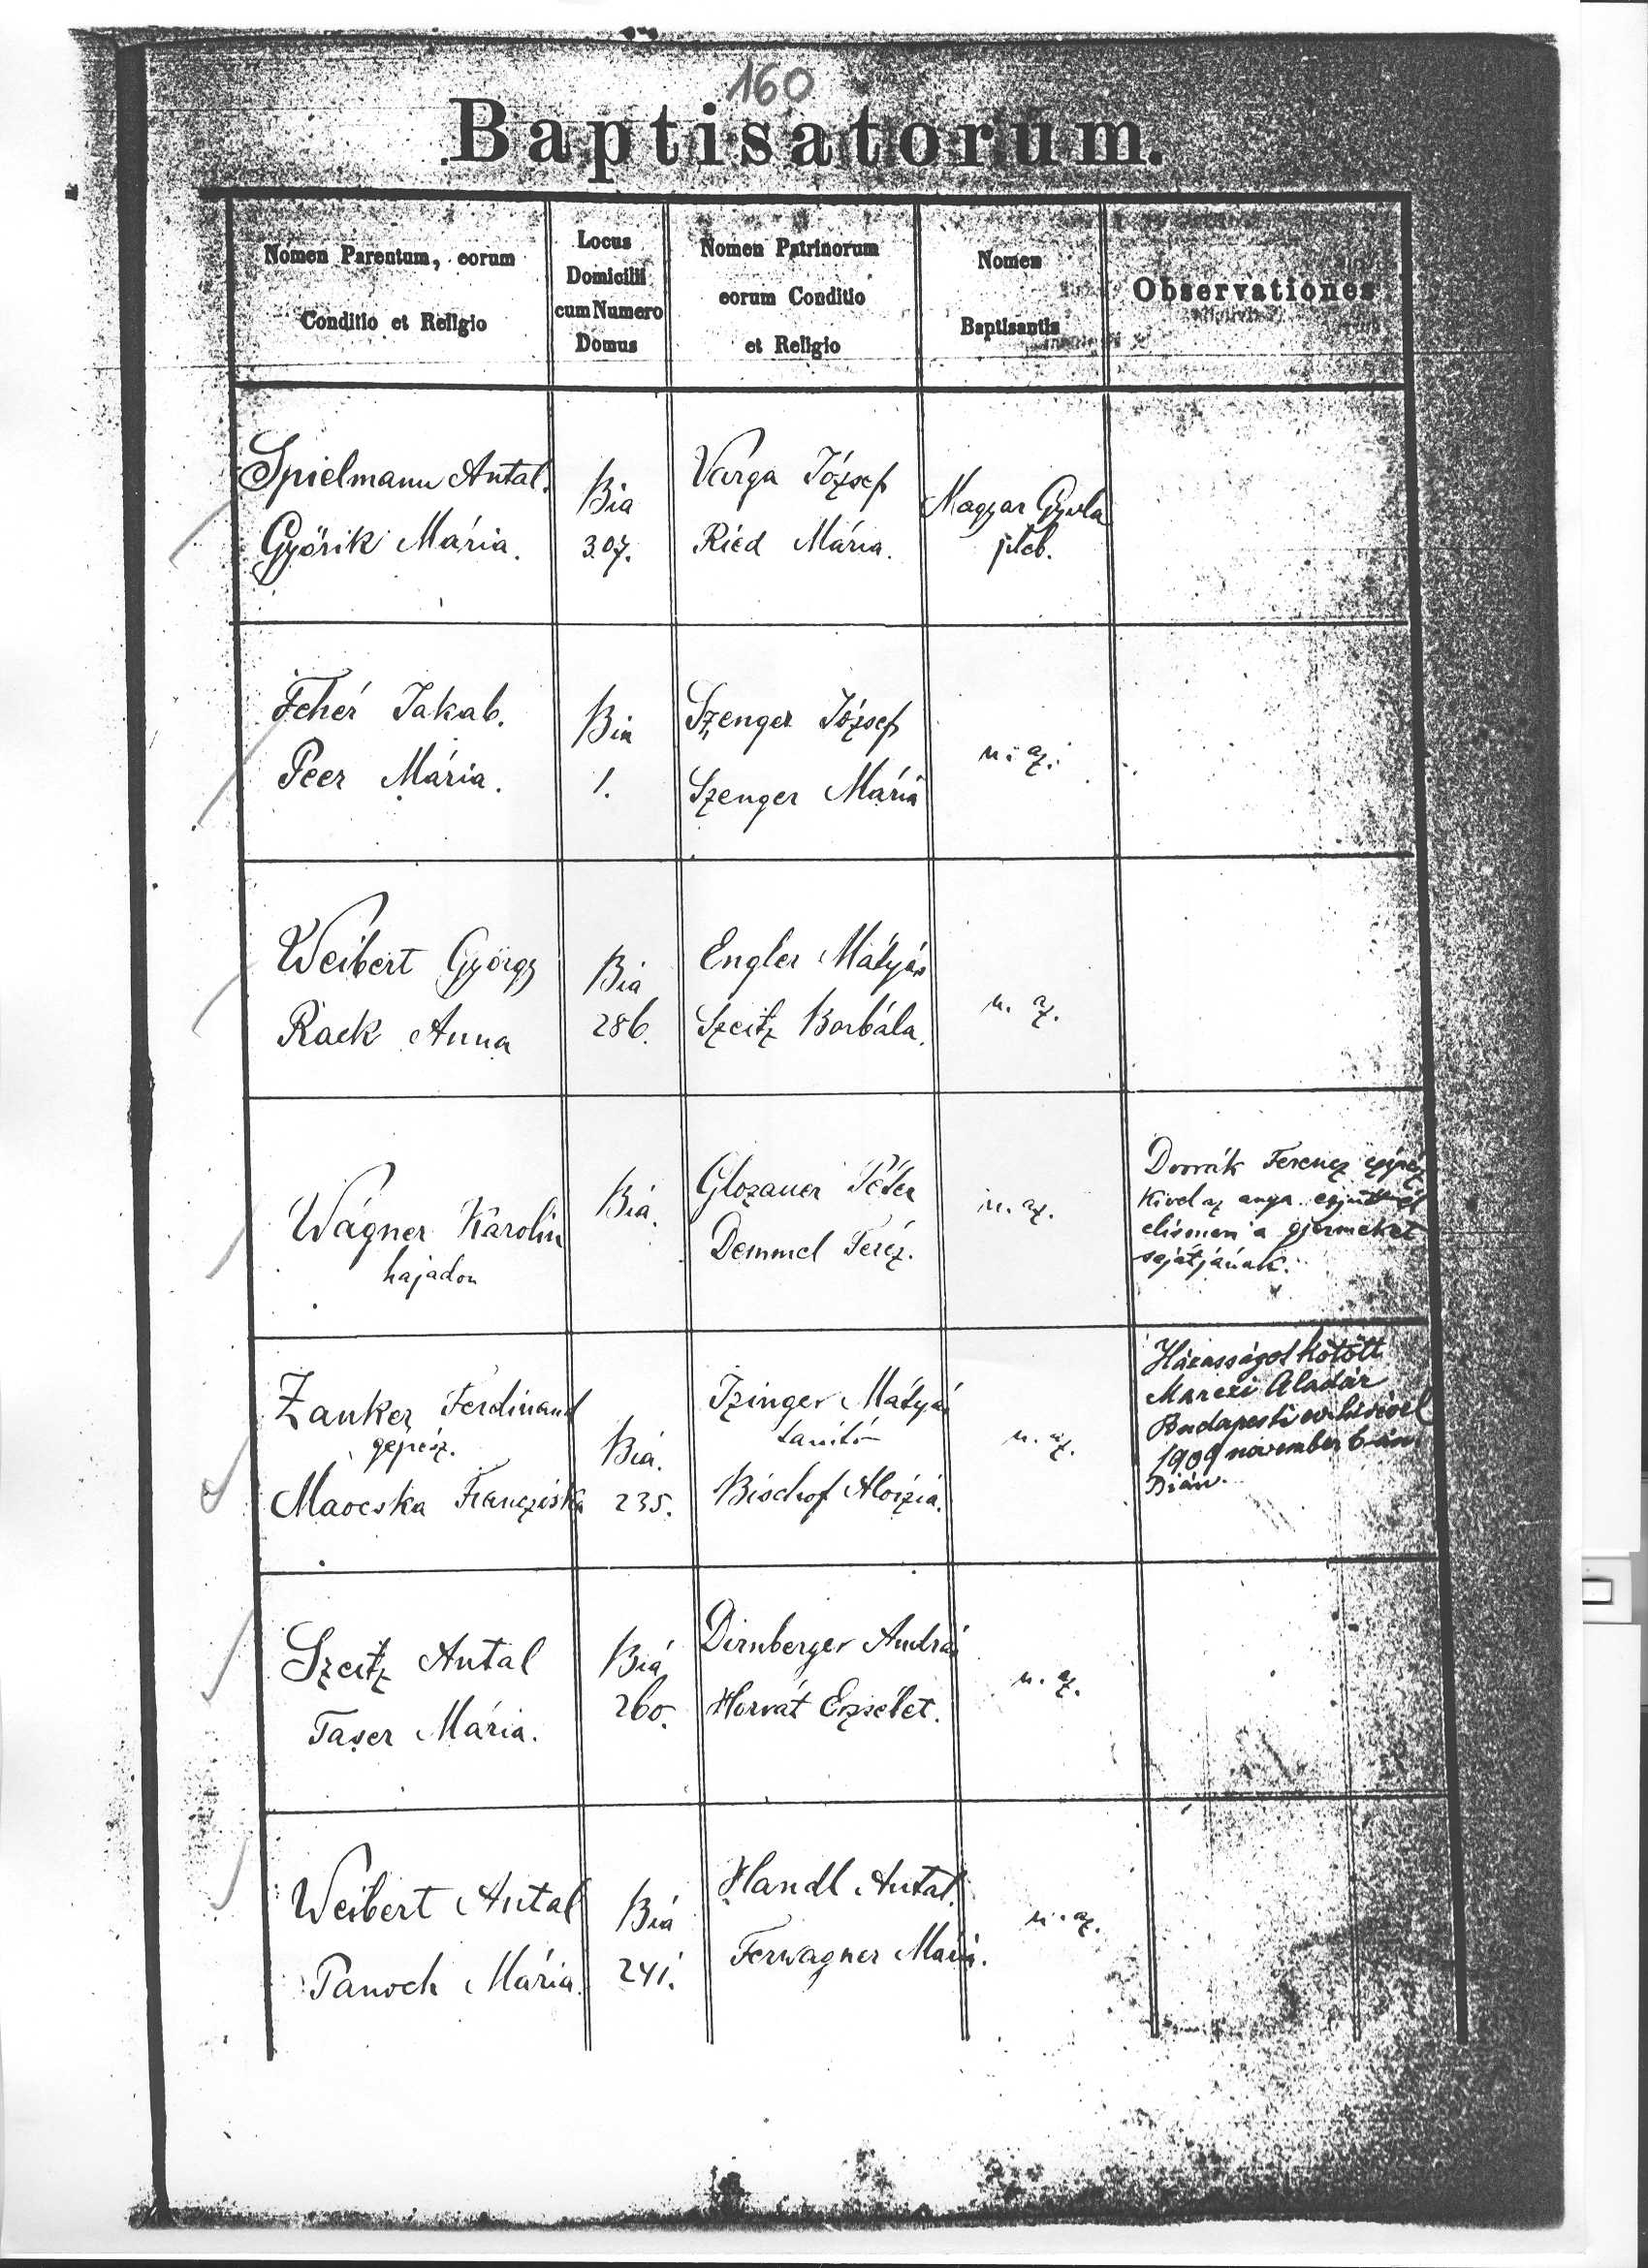 160
Baptisatorum.
Nomen Parentum, eorum
Conditio et Religio
Locus
Domicilii
cum Numero
Domus
Nomen Patrinorum
eorum Conditio
et Religio
Nomen
Baptisantis
Observationes
Spielmann Antal.
Györik Mária.
Bia
307.
Varga József
Ried Mária.
Magyar Gyula
pleb.
Fehér Jakab.
Peer Mária.
Bia
1.
Szenger József
Szenger Mária
u. az.
Weibert György
Rack Anna
Bia
286.
Engler Mátyás
Szeitz Borbála.
u. az.
Wágner Karolin
hajadon
Bia.
Glozauer Péter
Demmel Teréz.
u. az.
Dvorák Ferencz
Kivel az anya
elismeri a gyermeket
sajátjának.
Zanker Ferdinand
gépész.
Macska Francziska
Bia.
235.
Izinger Mátyás
tanító
Bischof Aloizia.
u. az.
Házasságot kötött
Marczi Aladár
Budapesti
1909 november 6-án
Bián.
Szeitz Antal
Taser Mária.
Bia
260.
Dirnberger András
Horvát Erzsébet.
u. az.
Weibert Antal
Panoch Mária.
Bia
241.
Handl Antal.
Ferwagner Mária.
u. az.